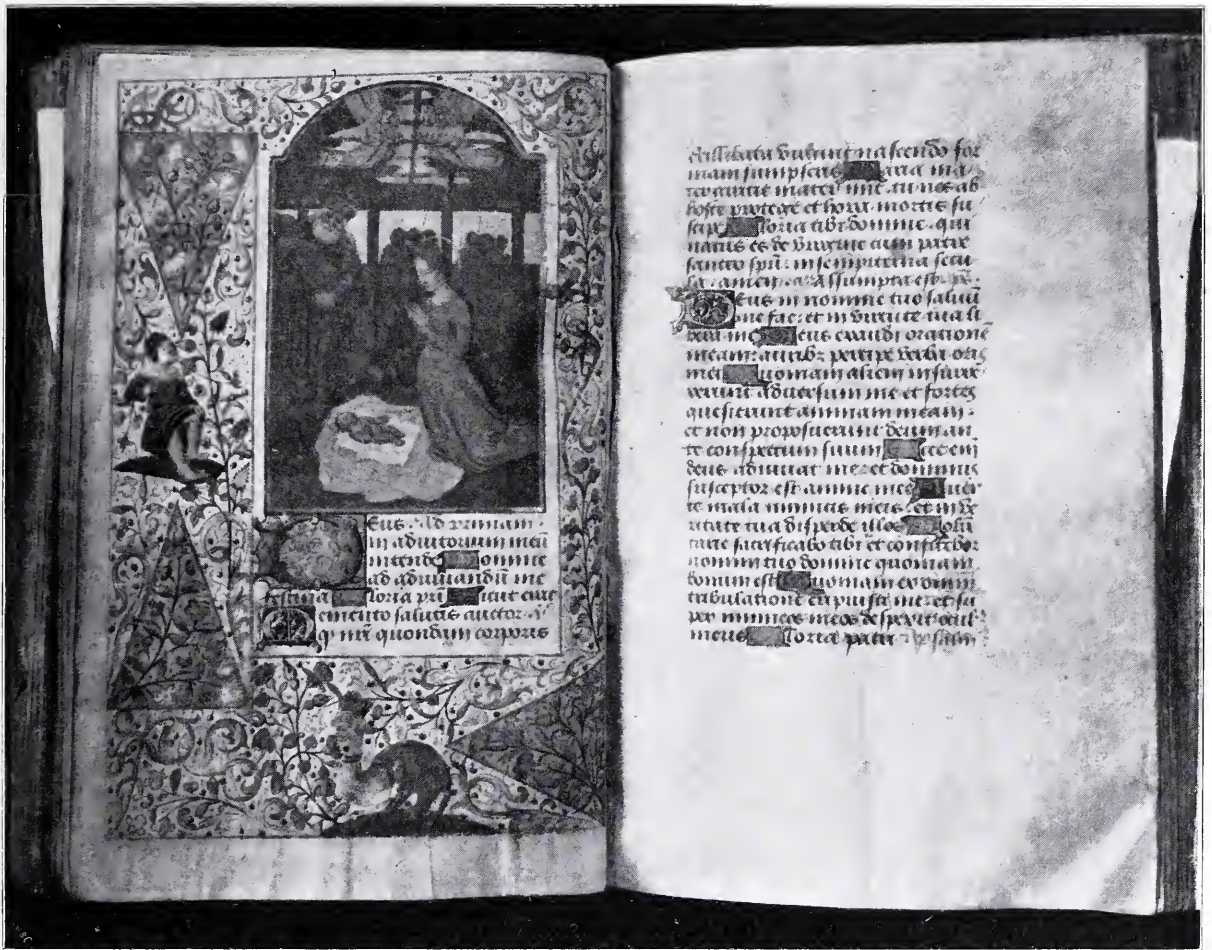 Deus Ad primam
in adiutorium meū
intende Domine
ad adiuuandū me
festina Gloria pri Sicut erat
Memento salutis auctor
q nri quondam corporis
Ex illibata virgine nascendo for
mam sumpseris Maria ma
ter gratie mater mie tu nos ab
hoste protege et hora mortis su
scipe Gloria tibi domine qui
natus es de virgine cum patre
sancto spū in sempiterna secu
la amen a Assumpta est ps
Deus in nomine tuo saluū
me fac et in virtute tua li
bera me Deus exaudi orationē
meam auribz percipe verba oris
mei Quoniam alieni insurre
xerunt aduersum me et fortes
quesierunt animam meam
et non proposuerunt deum an
te conspectum suum Ecce em
deus adiuuat me et dominus
susceptor est anime mee Auer
te mala inimicis meis et in ve
ritate tua disperde illos Volū
tarie sacrificabo tibi et confitebor
nomini tuo domine quoniam
bonum est Quoniam ex omni
tribulatione eripuisti me et su
per inimicos meos despexit ocul
meus Gloria patri